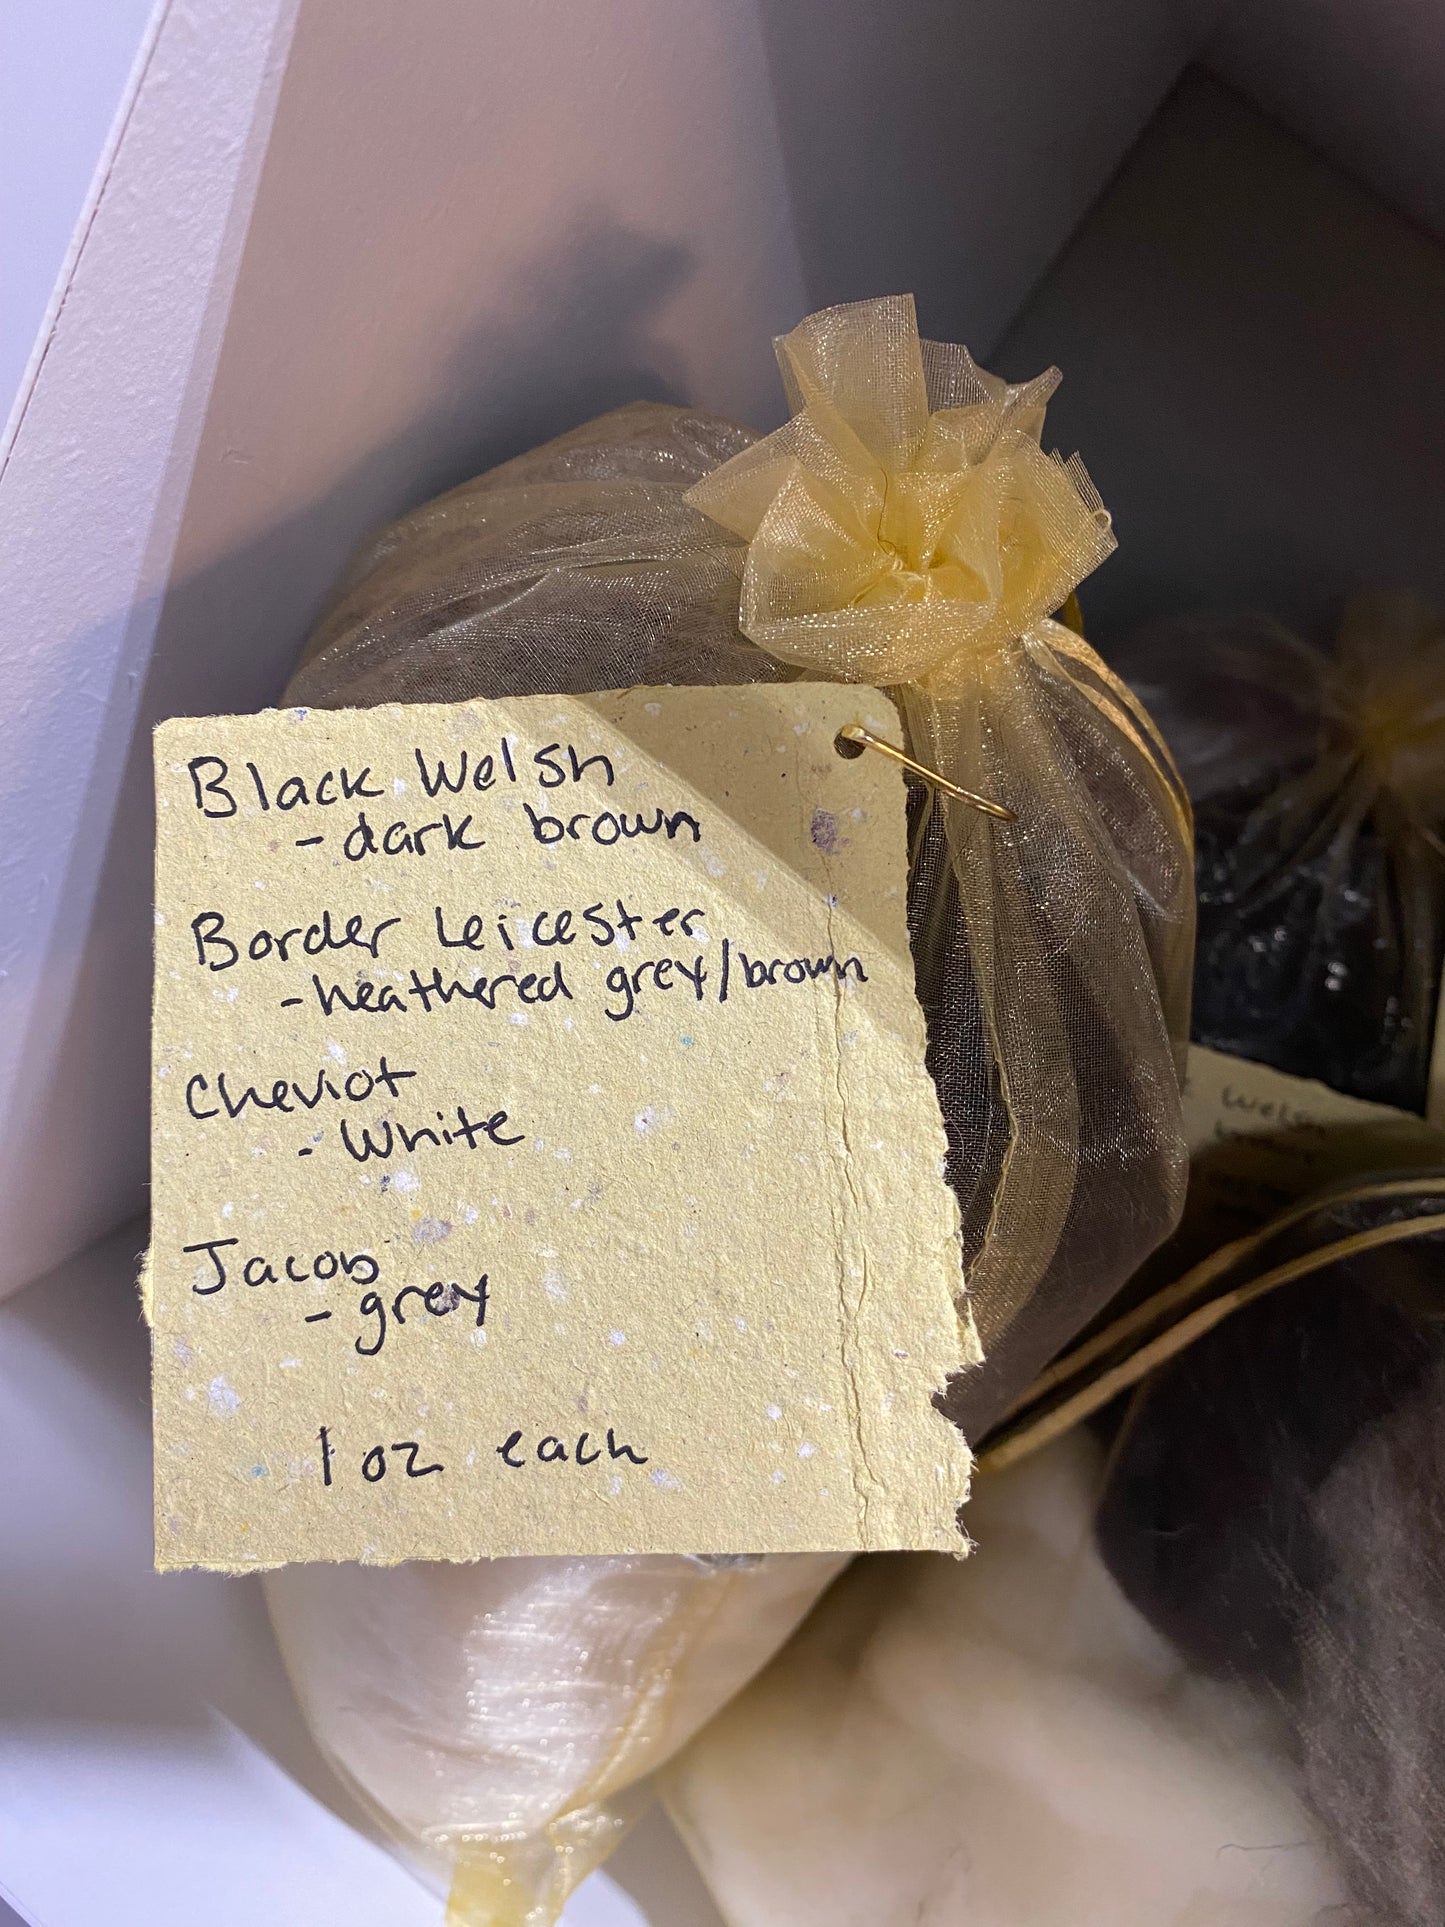 Black Welsh
- dark brown
Border Leicester
- heathered grey/brown
Cheviot
- White
Jacob
- grey
1 oz each
Welsh